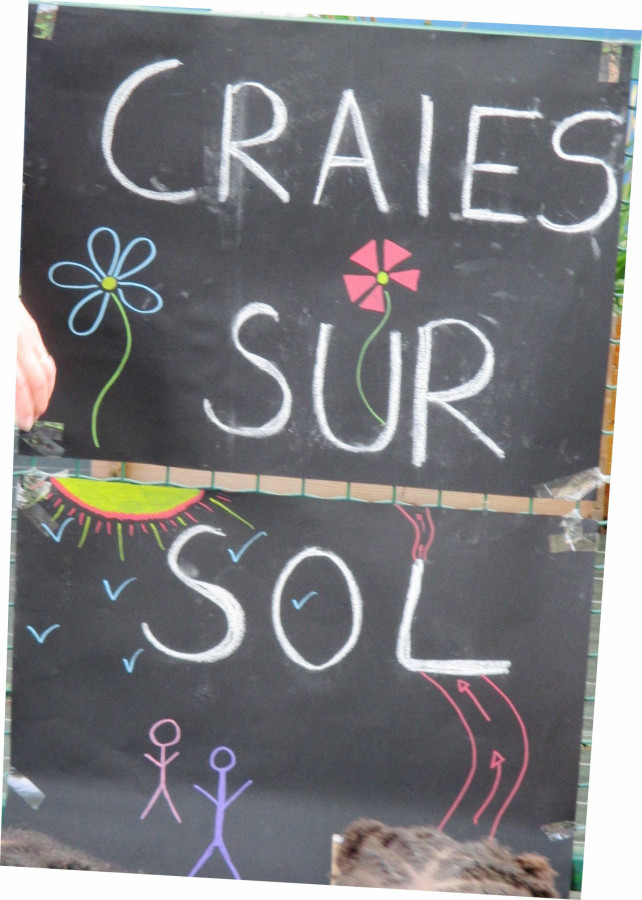 CRAIES
SUR
SOL